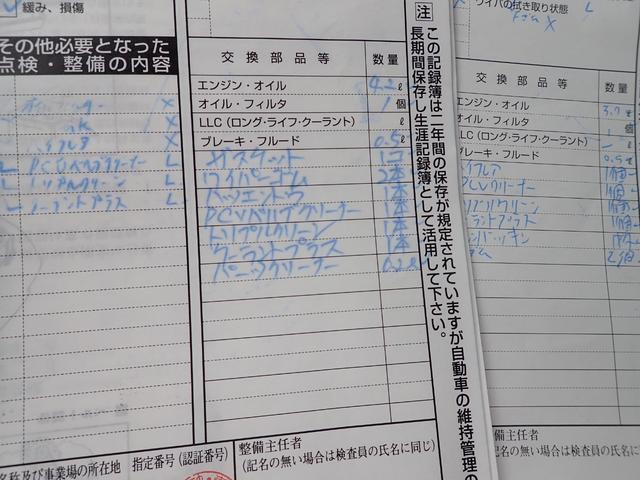 緩み、損傷
その他必要となった
点検・整備の内容
X
X
X
L PCVバルブクリーナー L
L トリプルクリーン L
クーラントプラス L
交換部品等 数量
エンジン・オイル 4.2 ℓ
オイル・フィルタ 1 個
LLC(ロング・ライフ・クーラント) ℓ
ブレーキ・フルード 0.5 ℓ
ガスケット 1コ
ワイパーゴム 2本
1本
PCVバルブクリーナー 1本
トリプルクリーン 1本
クーラントプラス 1本
パーツクリーナー 0.2
注
この記録簿は二年間の保存が規定されていますが自動車の維持管理の
長期間保存し生涯記録簿として活用して下さい。
名称及び事業場の所在地
指定番号(認証番号)
整備主任者
(記名の無い場合は検査員の氏名に同じ)
ワイパの拭き取り状態 L
ゴム X
交換部品等 数量
エンジン・オイル 3.7
オイル・フィルタ 1
LC(ロング・ライフ・クーラント)
ブレーキ・フルード 0.5
PCVクリーナー
ーラントプラス
ンパッキン
ゴム 2
整備主任者
(記名の無い場合は検査員の氏名